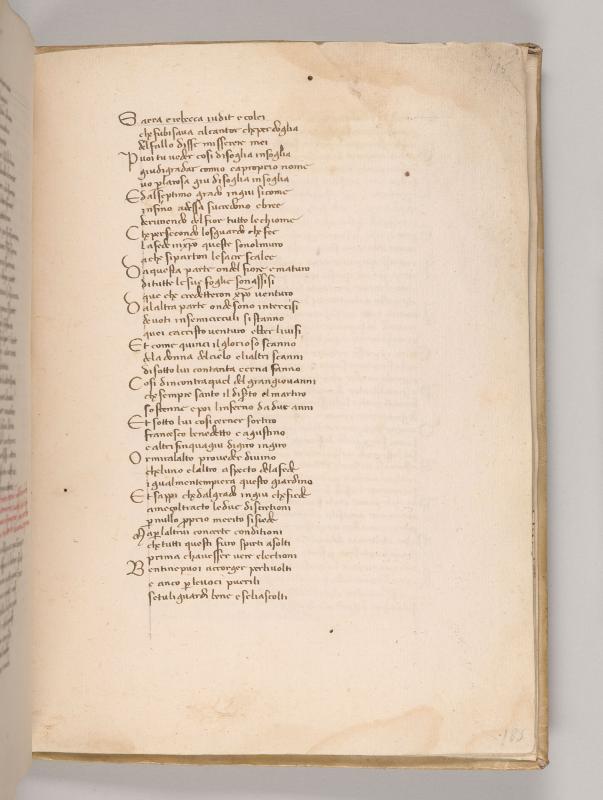 185
Sarra e rebecca iudit e colei
che fu bisava al cantor che per doglia
del fallo disse miserere mei
Puoi tu veder cosi di soglia in soglia
giu digradar como ca proprio nome
vo p la rosa giu di foglia in foglia
E dal septimo grado in giu si come
infino ad esso succedono ebree
dirimendo del fior tutte le chiome
Che per secondo lo sguardo che fee
la fede in xpo queste sono il muro
a che si parton le sacre scalee
Da questa parte onde l fiore e maturo
di tutte le sue foglie son assisi
que che credetteron xpo venturo
Da laltra parte onde sono intercisi
de voti in semicirculi si stanno
quei ca cristo venuto ebber li visi
Et come quinci il glorioso scanno
dela donna del cielo e li altri scanni
di sotto lui cotanta cerna fanno
Cosi di contra quel del gran giovanni
che sempre santo il diserto el martiro
sofferse e poi linferno da due anni
Et sotto lui cosi cerner sortiro
francesco benedetto e agustino
e altri fin qua giu di giro in giro
Or mira lalto proveder divino
che luno e laltro aspecto dela fede
igualmente empiera questo giardino
Et sappi che dal grado in giu che fiede
a mezo l tracto le due discretioni
p nullo pprio merito si siede
Ma p laltrui con certe conditioni
che tutti questi furo spirti asolti
prima chavesser vere electioni
Ben tine puoi accorger per li volti
e anco p le voci puerili
se tu li guardi bene e se li ascolti
185